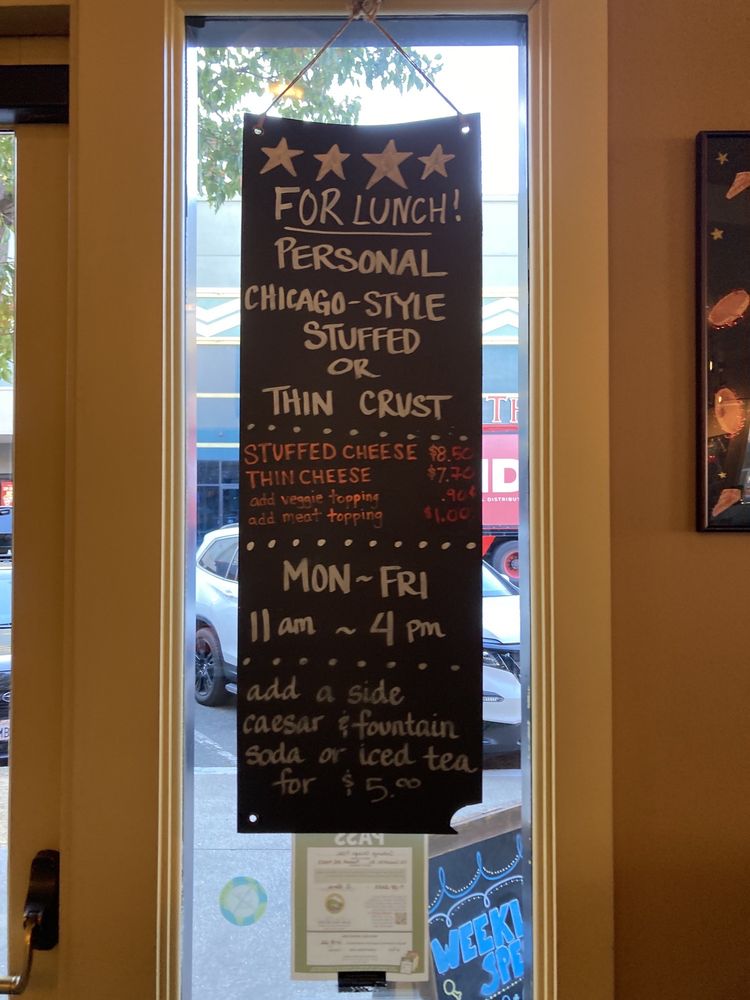 FOR LUNCH!
PERSONAL
CHICAGO-STYLE
STUFFED
OR
THIN CRUST
STUFFED CHEESE $8.50
THIN CHEESE $7.70
add veggie topping .90¢
add meat topping $1.00
MON~FRI
11am ~ 4pm
add a side
caesar & fountain
soda or iced tea
for $5.00
PASS
WEEKL
SPE